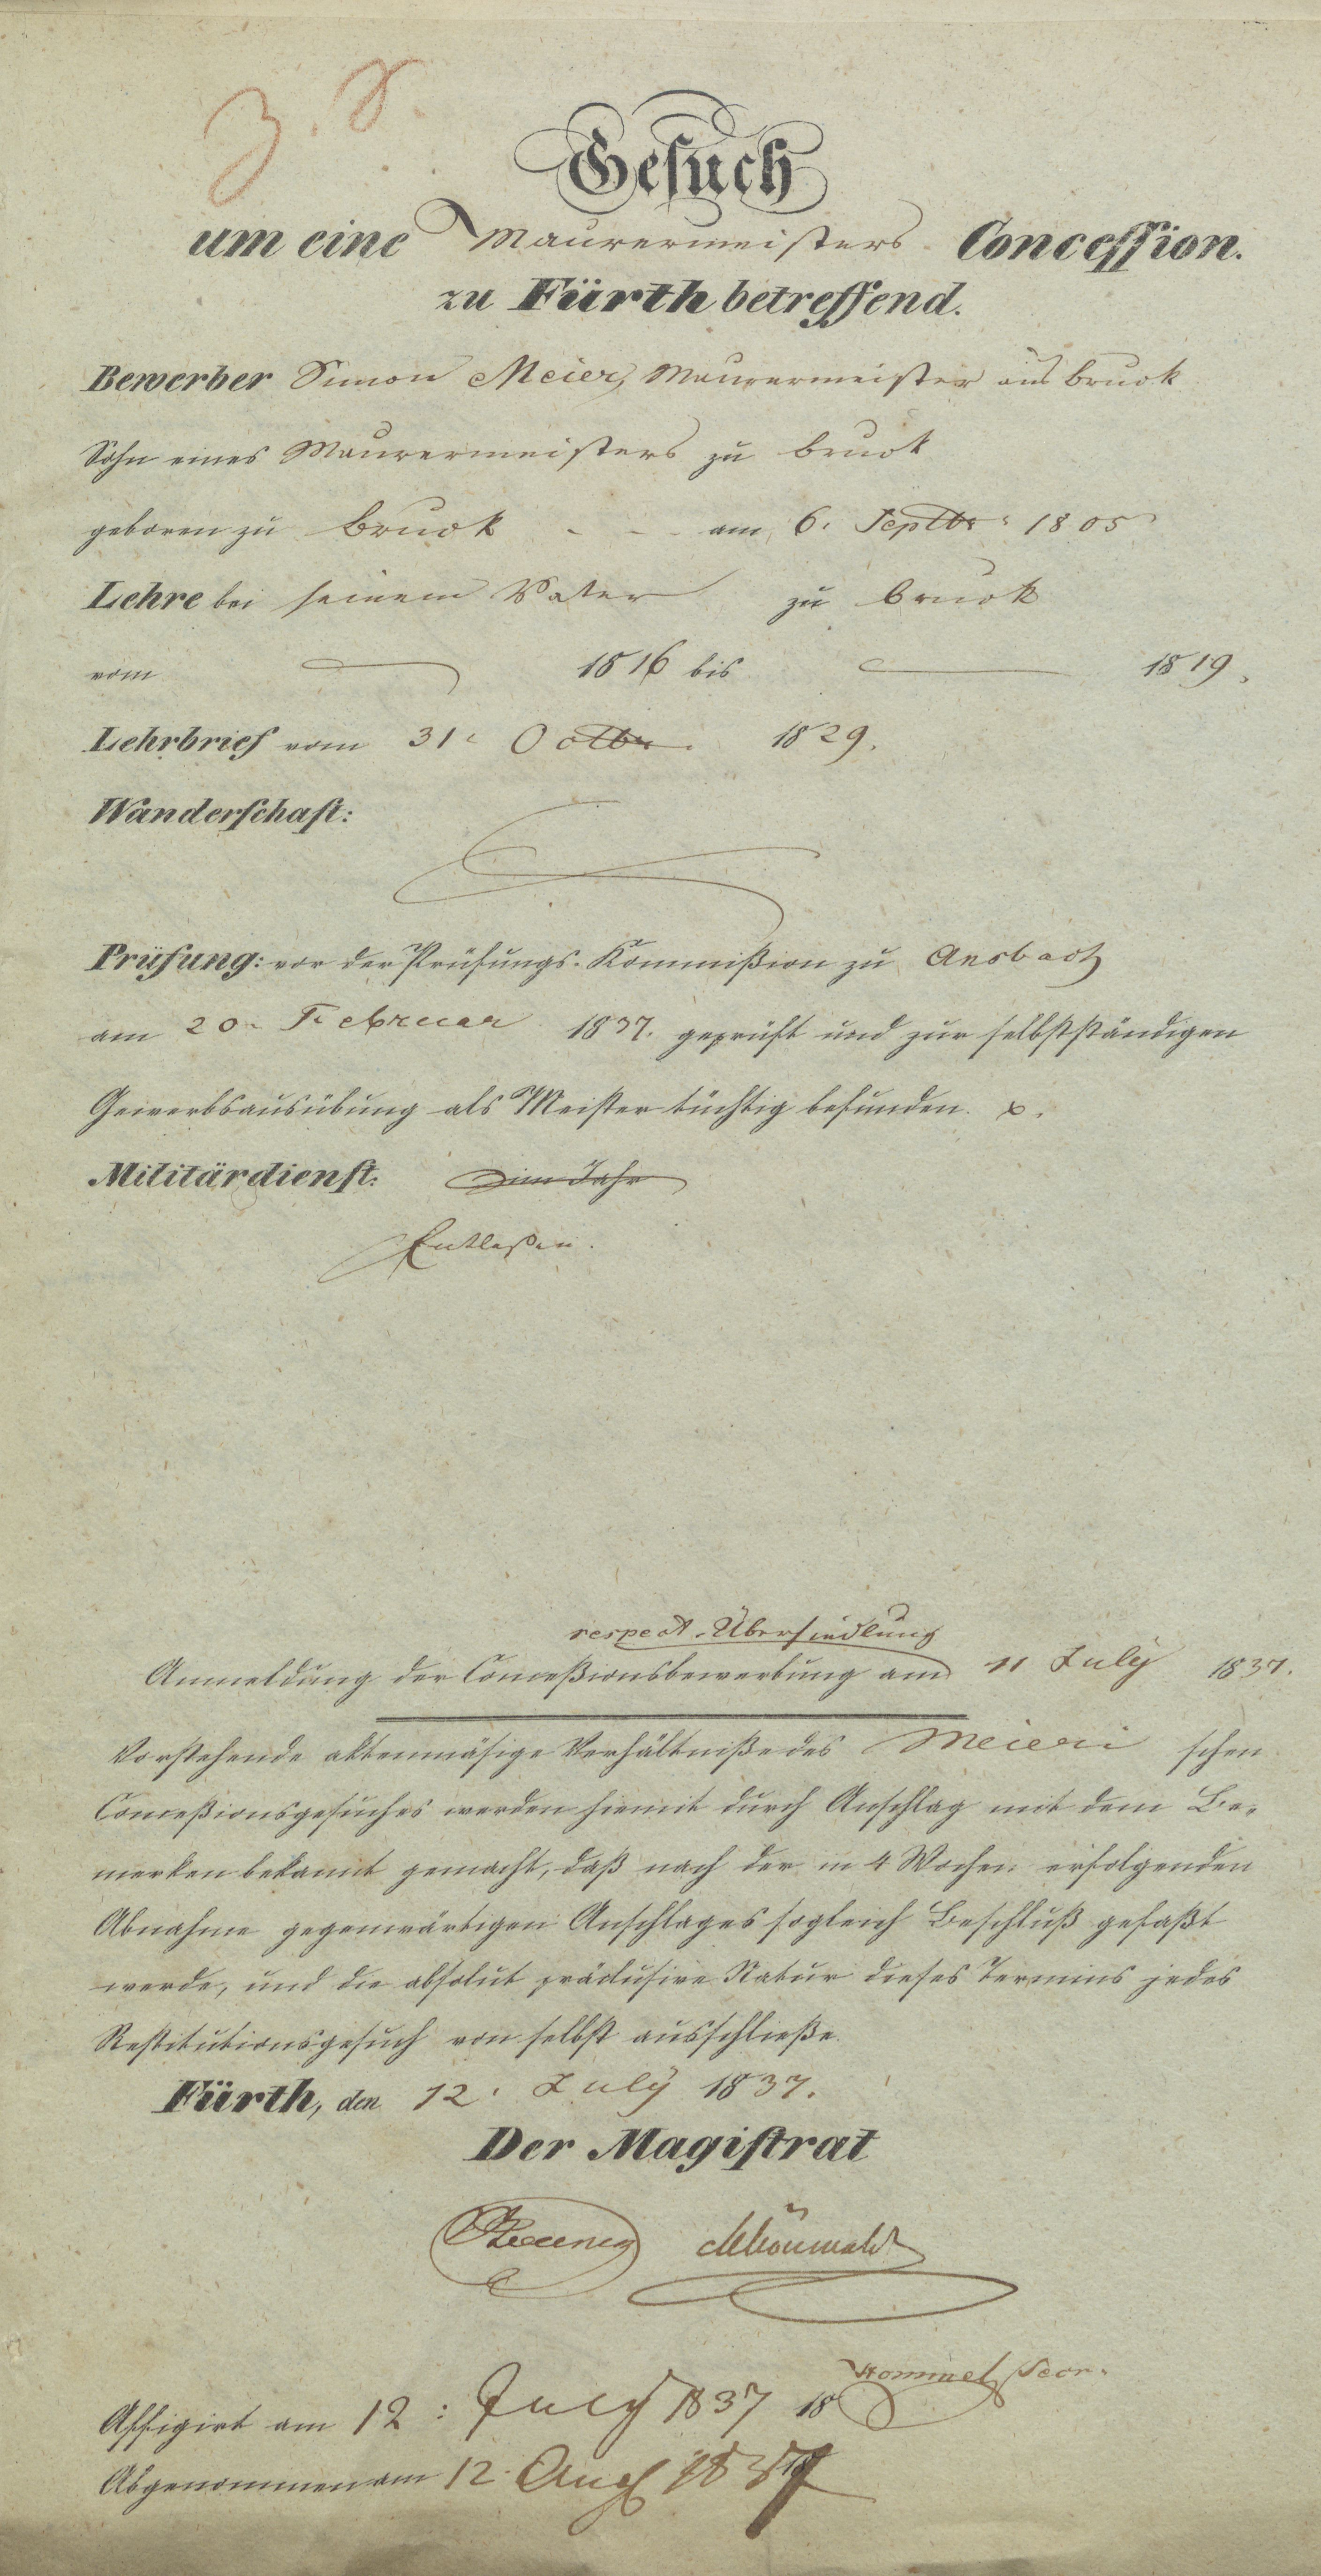 Gesuch
um eine Maurermeisters Concession.
zu Fürth betreffend.
Bewerber Simon Meier, Maurermeister aus Bruck
Sohn eines Maurermeisters zu Bruck
geboren zu Bruck - - - am 6. Septbr. 1805
Lehre bei seinem Vater zu Bruck
vom 1816 bis 1819.
Lehrbrief vom 31. Octbr. 1829.
Wanderschaft:
Prüfung: vor der Prüfungs-Kommißion zu Ansbach
am 20. Februar 1837. geprüft und zur selbstständigen
Gewerbsausübung als Meister tüchtig befunden.
Militärdienst: im Jahr
Entlaßen.
respect. Übersiedlung
Anmeldung der Conceßionsbewerbung am 11 July 1837.
Vorstehende aktenmäsige Verhältniße des Meieri schen
Conceßionsgesuches werden hiemit durch Anschlag mit dem Be-
merken bekannt gemacht, daß nach der in 4 Wochen erfolgenden
Abnahme gegenwärtigen Anschlages sogleich Beschluß gefaßt
werde, und die absolut präclusive Natur dieses Termins jedes
Restitutionsgesuch von selbst ausschließe.
Fürth, den 12. July 1837.
Der Magistrat
Hommel Secr.
Affigirt am 12: July 1837 18
Abgenommen am 12. Aug 1837